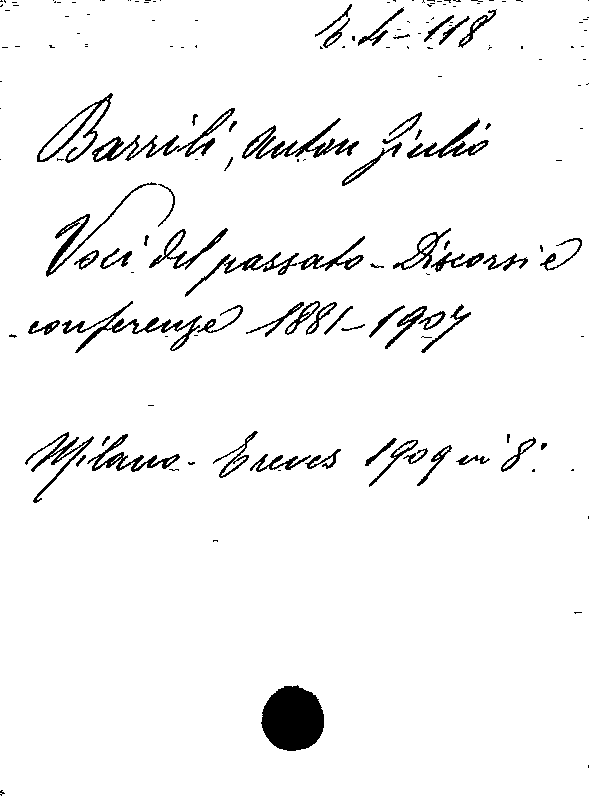 E. 4 - 118
Barrili, Anton Giulio
Voci del passato - Discorsi e
conferenze 1881 - 1907
Milano - Treves 1909 in 8°.